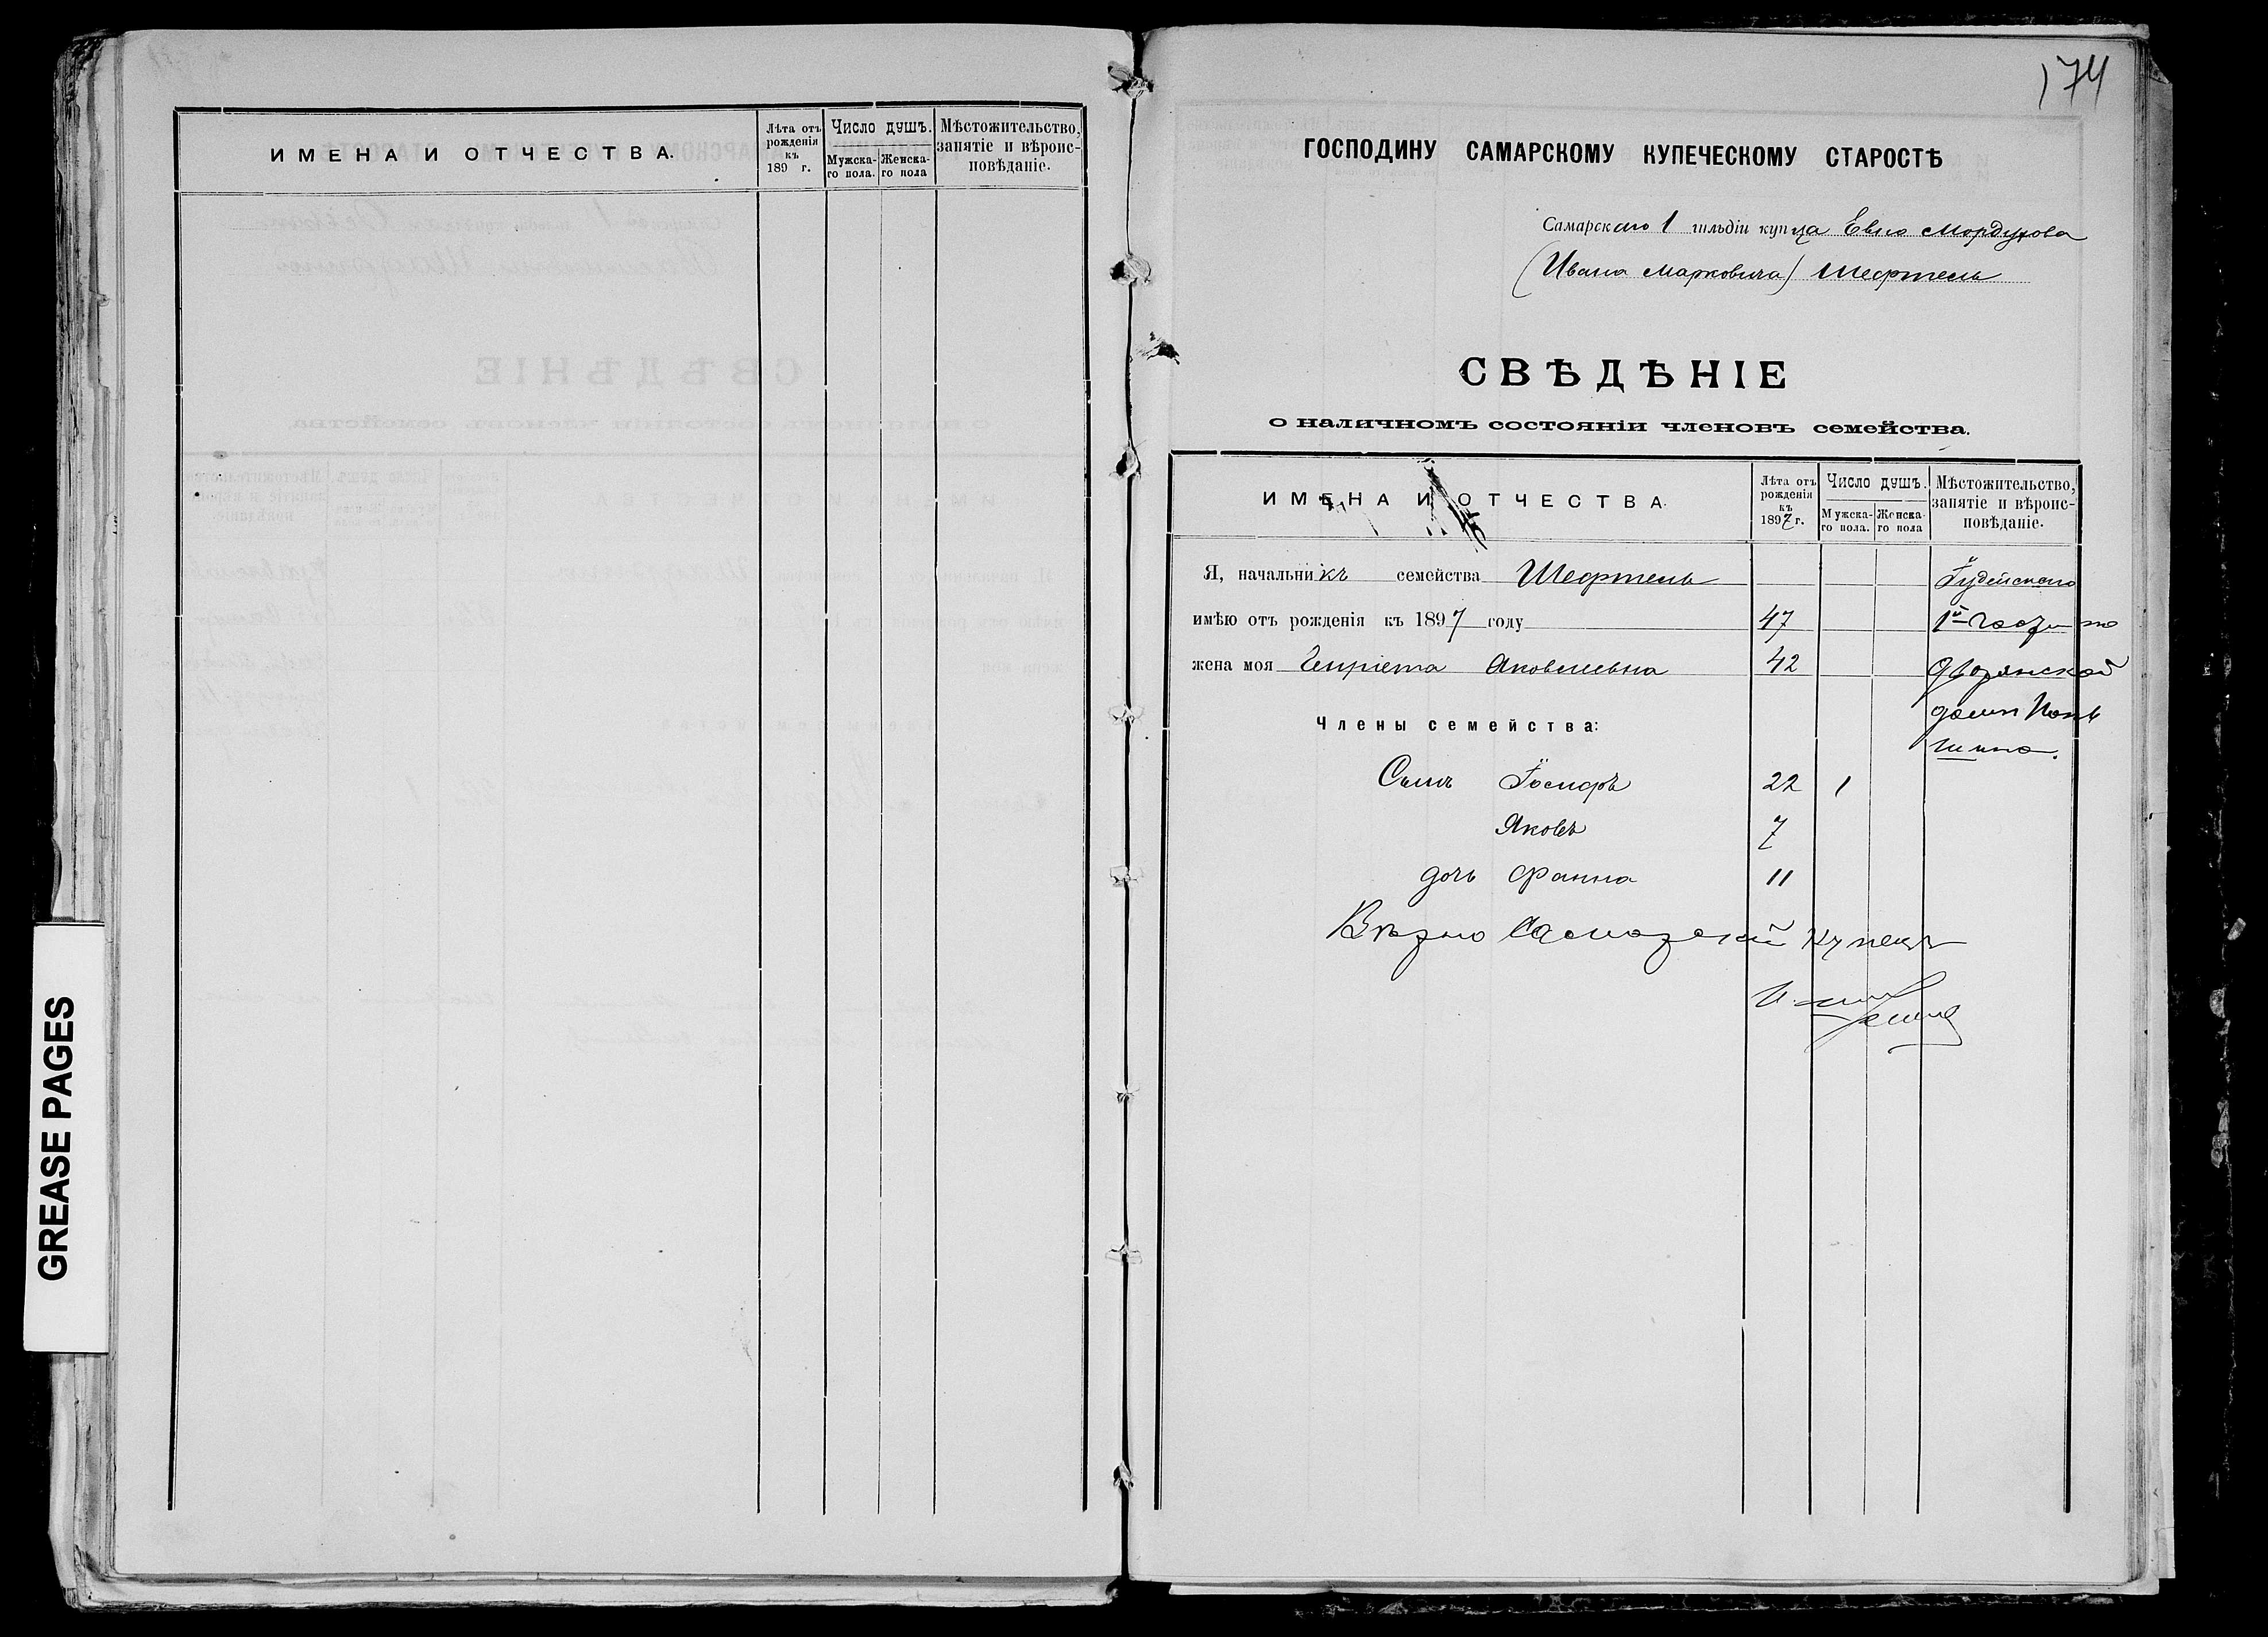 ИМЕНА И ОТЧЕСТВА.
Лѣта отъ рожденія къ 189 г.
Число душъ.
Мужска-го пола.
Женска-го пола
Мѣстожительство, занятіе и вѣроис-повѣданіе.
GREASE PAGES
174
ГОСПОДИНУ САМАРСКОМУ КУПЕЧЕСКОМУ СТАРОСТѢ
Самарскаго 1 гильдіи купца Евно Мордухова
(Ивана Марковича) Шефтель
СВѢДѢНІЕ
о наличномъ состояніи членовъ семейства.
ИМЕНА И ОТЧЕСТВА.
Лѣта отъ рожденія къ 1897 г.
Число душъ.
Мужска-го пола.
Женска-го пола
Мѣстожительство, занятіе и вѣроис-повѣданіе.
Я, начальникъ семейства Шефтель Іудейскаго
имѣю отъ рожденія къ 1897 году 47 1й части по
жена моя Генріета Яковлевна 42 Дворянской
домъ
Члены семейства:
Сынъ Іосифъ 22 1
Яковъ 7
дочь Фанна 11
Вѣрно Самарскій купецъ
И.